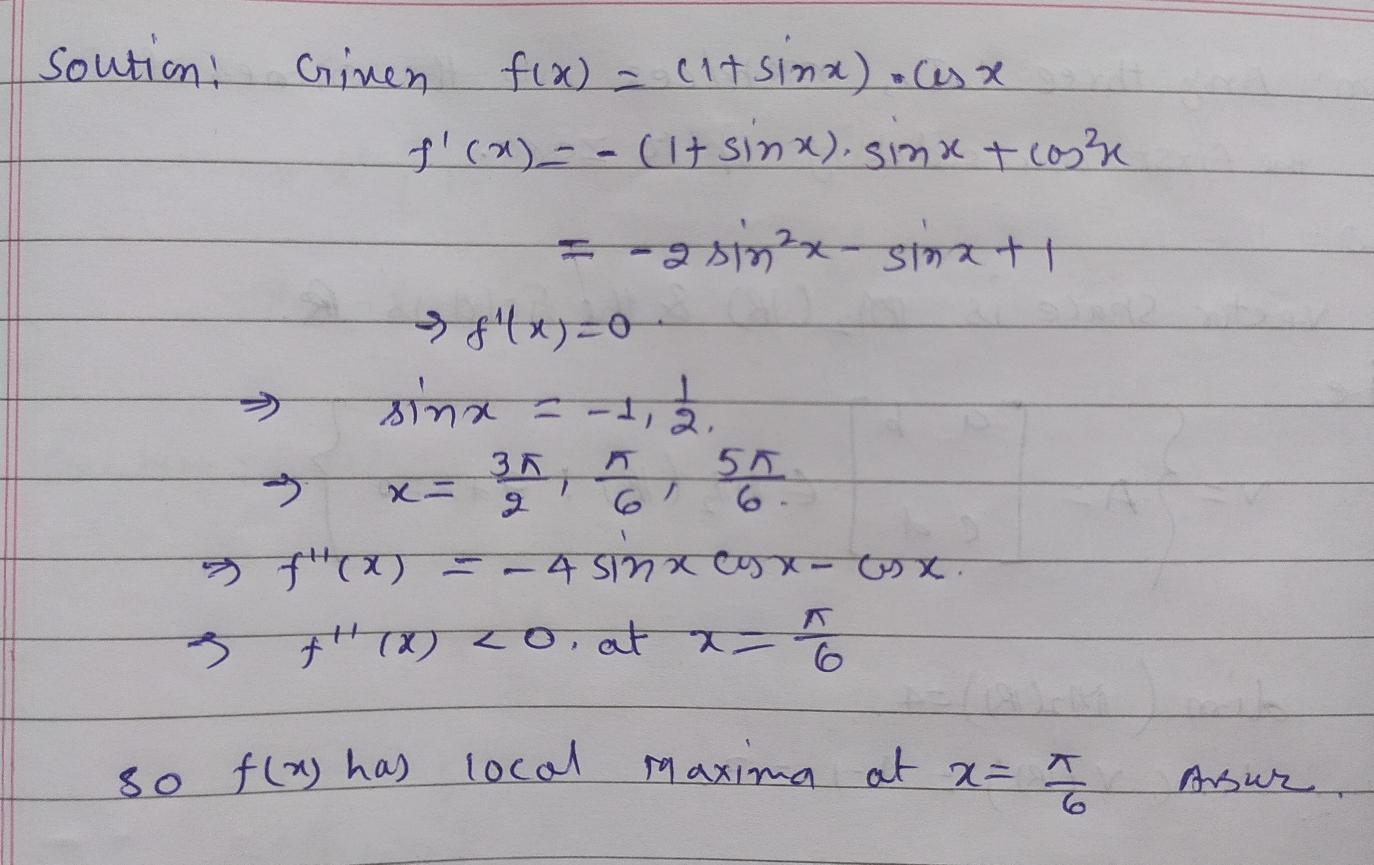 Soution: Given f(x) = (1+sinx).cosx
f'(x) = -(1+sinx).sinx + cos²x
= -2sin²x - sinx + 1
⇒ f'(x)=0.
⇒ sinx = -1, 1/2.
⇒ x = 3π/2, π/6, 5π/6.
⇒ f''(x) = -4 sinx cosx - cosx.
⇒ f''(x) < 0, at x = π/6
so f(x) has local maxima at x = π/6